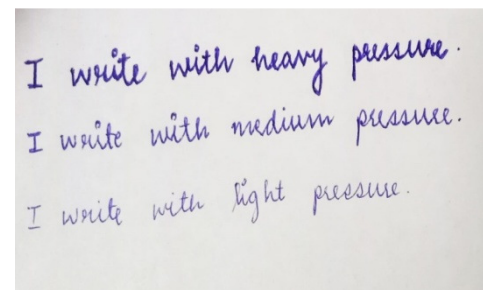 I write with heavy pressure.
I write with medium pressure.
I write with light pressure.